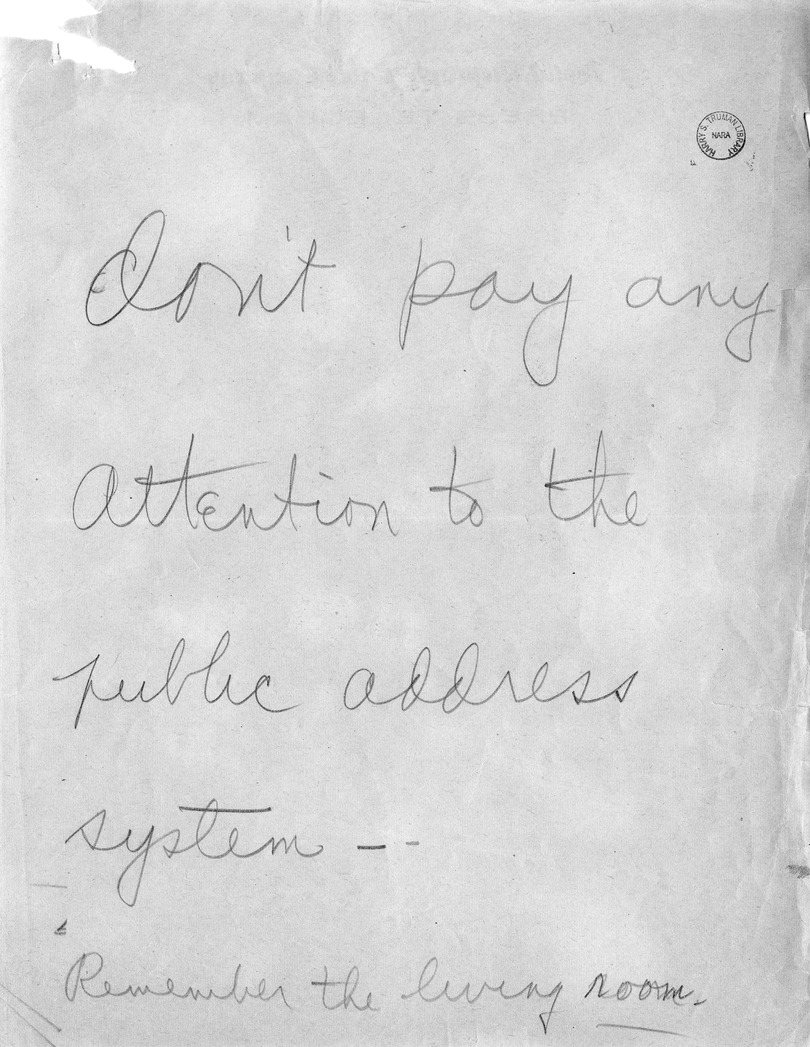 HARRY S. TRUMAN LIBRARY
NARA
Don't pay any
Attention to the
public address
system --
Remember the living room.